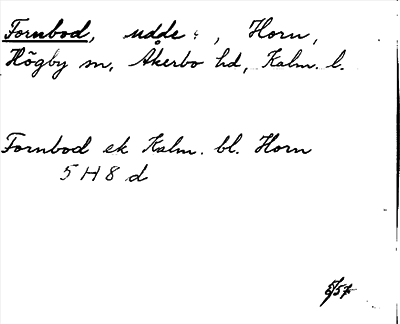 Fornbod, udde : , Horn,
Högby sn, Åkerbo hd, Kalm. l.
Fornbod ek Kalm. bl. Horn
5 H 8 d